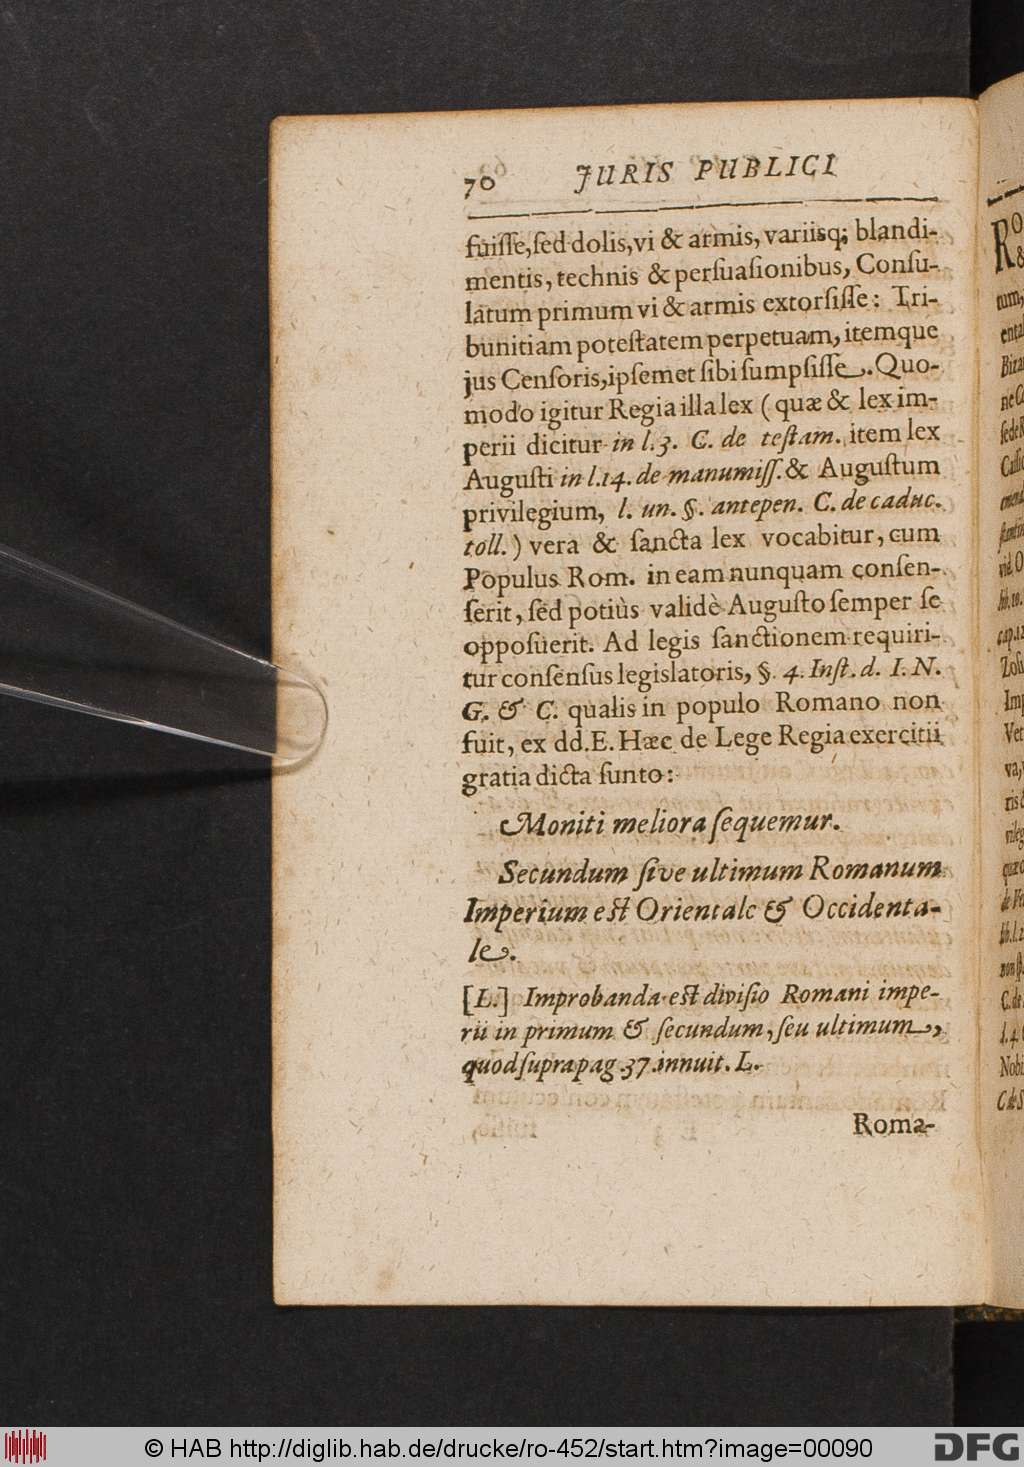 70 JURIS PUBLICI
fuisse, sed dolis, vi & armis, variisq; blandi-
mentis, technis & persuasionibus, Consu-
latum primum vi & armis extorsisse: Tri-
bunitiam potestatem perpetuam, itemque
jus Censoris, ipsemet sibi sumpsisse. Quo-
modo igitur Regia illa lex ( quæ & lex im-
perii dicitur in l. 3. C. de testam. item lex
Augusti in l. 14. de manumiss. & Augustum
privilegium, l. un. §. antepen. C. de caduc.
toll. ) vera & sancta lex vocabitur, cum
Populus Rom. in eam nunquam consen-
serit, sed potiùs validè Augusto semper se
opposuerit. Ad legis sanctionem requiri-
tur consensus legislatoris, §. 4. Inst. d. I. N.
G. & C. qualis in populo Romano non
fuit, ex dd. E. Hæc de Lege Regia exercitii
gratia dicta sunto:
Moniti meliora sequemur.
Secundum sive ultimum Romanum
Imperium est Orientale & Occidenta-
le.
[L.] Improbanda est divisio Romani impe-
rii in primum & secundum, seu ultimum,
quod supra pag. 37. innuit. L.
Roma-
RO
&
tum,
enta
Biza
sede
Zos
Imp
Vet
va,
ris
C. de
Nobi
© HAB http://diglib.hab.de/drucke/ro-452/start.htm?image=00090
DFG